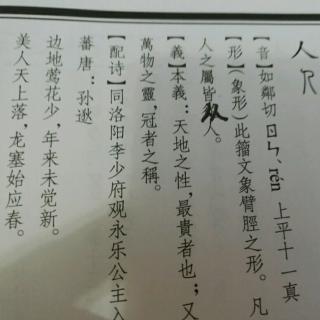 人
【音】如鄰切 ㄖㄣˊ rén 上平十一真
【形】(象形)此籀文象臂脛之形。凡
人之屬皆从人。
【義】本義:天地之性,最貴者也;又
萬物之靈,冠者之稱。
【配诗】同洛阳李少府观永乐公主入
蕃 唐:孙逖
边地莺花少,年来未觉新。
美人天上落,龙塞始应春。